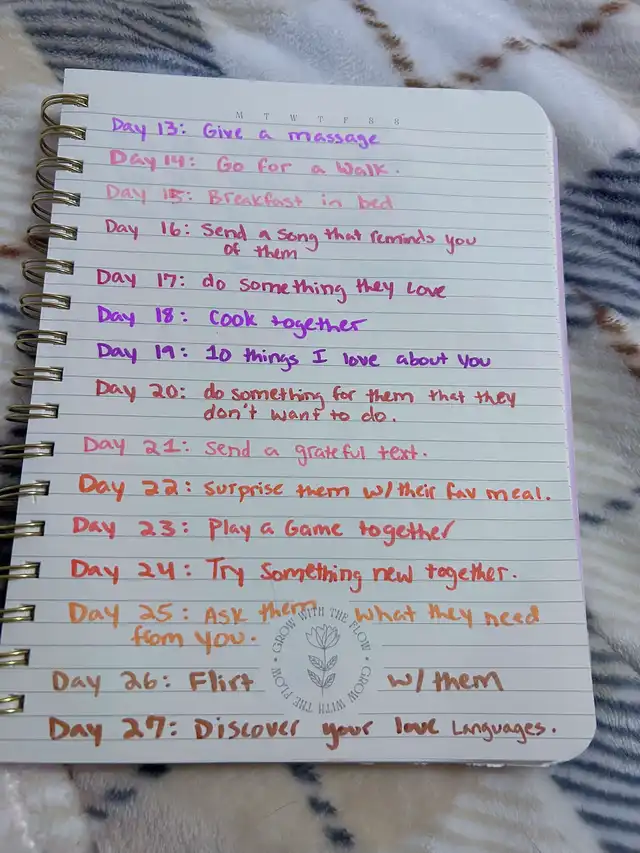 M T W T F S S
Day 13: Give a massage
Day 14: Go for a walk.
Day 15: Breakfast in bed
Day 16: Send a song that reminds you
of them
Day 17: do something they love
Day 18: Cook together
Day 19: 10 things I love about you
Day 20: do something for them that they
don't want to do.
Day 21: Send a grateful text.
Day 22: Surprise them w/their fav meal.
Day 23: Play a Game together
Day 24: Try something new together.
Day 25: Ask them what they need
from you.
GROW WITH THE FLOW • GROW WITH THE FLOW •
Day 26: Flirt w/them
Day 27: Discover your love Languages.